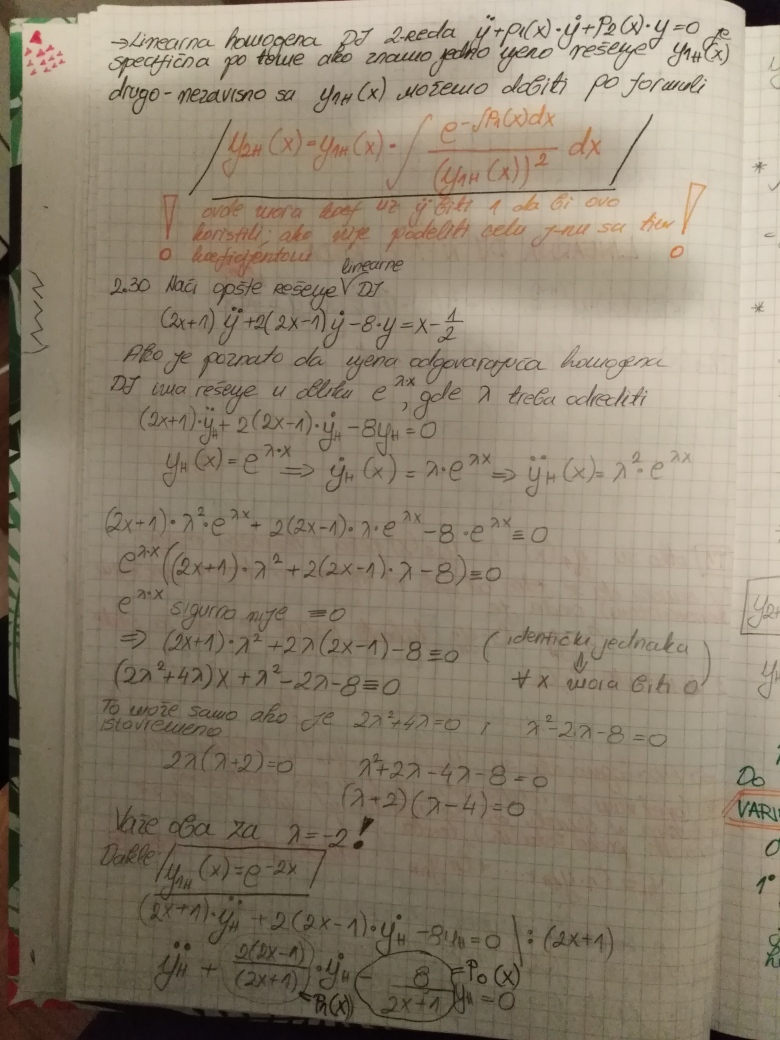 →Linearna homogena DJ 2-reda ÿ+p₁(x)·ẏ+P₂(x)·y=0 je
specifična po tome ako znamo jedno njeno rešenje y₁H(x)
drugo-nezavisno sa y₁H(x) možemo dobiti po formuli
y₂H(x)=y₁H(x)·∫ e^(-∫P₁(x)dx) / (y₁H(x))² dx
! ovde mora koef uz ÿ biti 1 da bi ovo !
koristili; ako nije podeliti celu j-nu sa tim
koeficijentom
2.30 Naći opšte rešenje linearne DJ
(2x+1) ÿ+2(2x-1)ẏ-8·y=x-1/2
Ako je poznato da njena odgovarajuća homogena
DJ ima rešenje u obliku e^λx, gde λ treba odrediti
(2x+1)·ÿH+2(2x-1)·ẏH-8yH=0
yH(x)=e^λ·x ⇒ ẏH(x)=λ·e^λx ⇒ ÿH(x)=λ²·e^λx
(2x+1)·λ²·e^λx+2(2x-1)·λ·e^λx-8·e^λx≡0
e^λ·x((2x+1)·λ²+2(2x-1)·λ-8)≡0
e^λ·x sigurna nije ≡0
⇒ (2x+1)·λ²+2λ(2x-1)-8≡0 (identički jednaka
(2λ²+4λ)x+λ²-2λ-8≡0 ⇓ ∀x mora biti 0)
To može samo ako je 2λ²+4λ=0 i λ²-2λ-8=0
istovremeno
2λ(λ+2)=0 λ²+2λ-4λ-8=0
(λ+2)(λ-4)=0
Važe oba za λ=-2!
Dakle: y₁H(x)=e^-2x
(2x+1)·ÿH+2(2x-1)·ẏH-8yH=0 |:(2x+1)
ÿH + 2(2x-1)/(2x+1)·ẏH - 8/(2x+1) yH=0
=P₁(x) =P₀(x)
y₂H
Do
VARI
1°